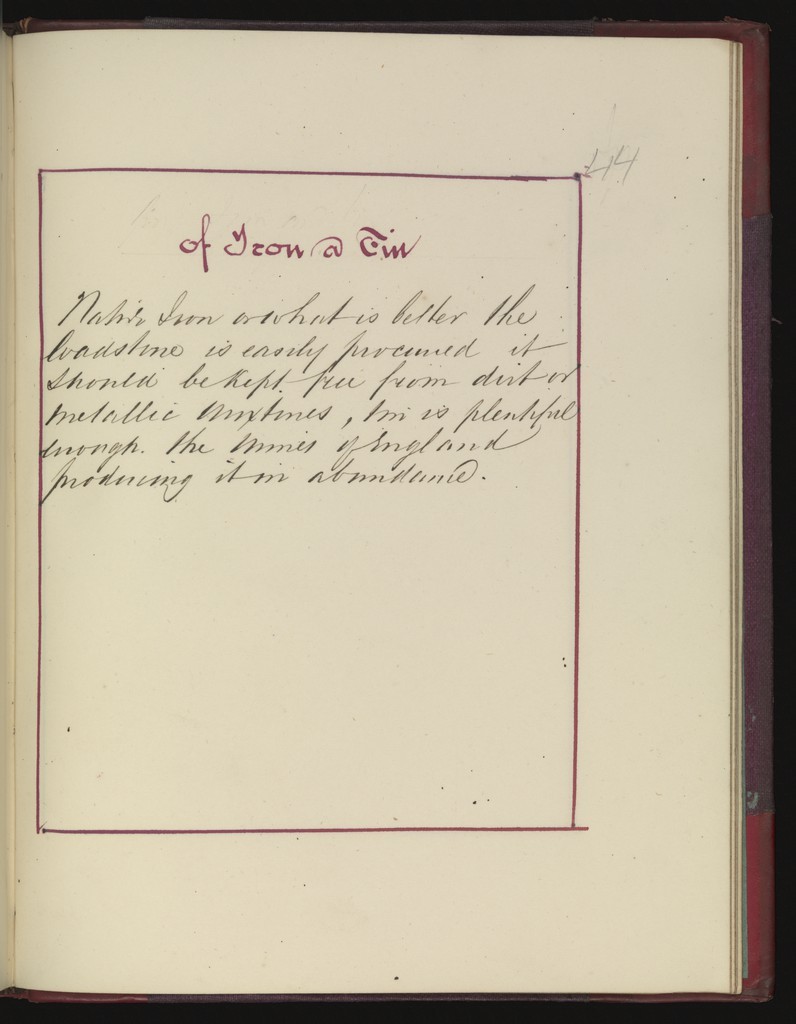 44
of Iron & Tin
Native Iron or what is better the
loadstone is easily procured it
should be kept free from dirt or
metallic mixtures, tin is plentiful
enough. the mines of England
producing it in abundance.